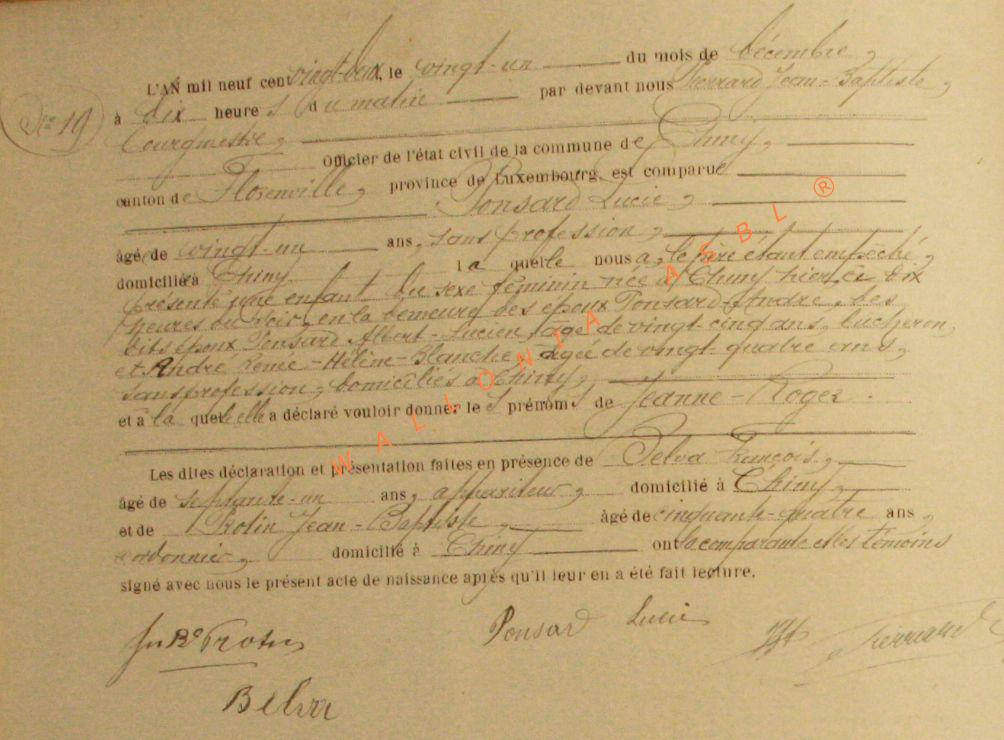 L'AN mil neuf cent vingt-deux, le vingt-un du mois de décembre,
No 19 à dix heures du matin par devant nous Pierrard Jean-Baptiste,
bourgmestre, Officier de l'état civil de la commune de Chiny,
canton de Florenville, province de Luxembourg, est comparue
Ponsard Lucie,
âgé de vingt-un ans, sans profession,
domicilié à Chiny la quelle nous a, le père étant empêché,
présenté une enfant du sexe féminin née à Chiny hier, à dix
heures du soir, en la demeure des époux Ponsard-André, des
dits époux Ponsard Albert-Lucien, âgé de vingt-cinq ans, bûcheron,
et André Renée-Hélène-Blanche, âgée de vingt-quatre ans,
sans profession, domiciliés à Chiny,
et à la quelle elle a déclaré vouloir donner les prénoms de Jeanne-Roger.
Les dites déclaration et présentation faites en présence de Belva François,
âgé de septante-un ans, appariteur, domicilié à Chiny,
et de Protin Jean-Baptiste, âgé de cinquante-quatre ans,
cordonnier, domicilié à Chiny ont la comparante et les témoins
signé avec nous le présent acte de naissance après qu'il leur en a été fait lecture.
Ponsard Lucie
Jn Bte Protin Pierrard
Belva
WALLONIA ASBL ®